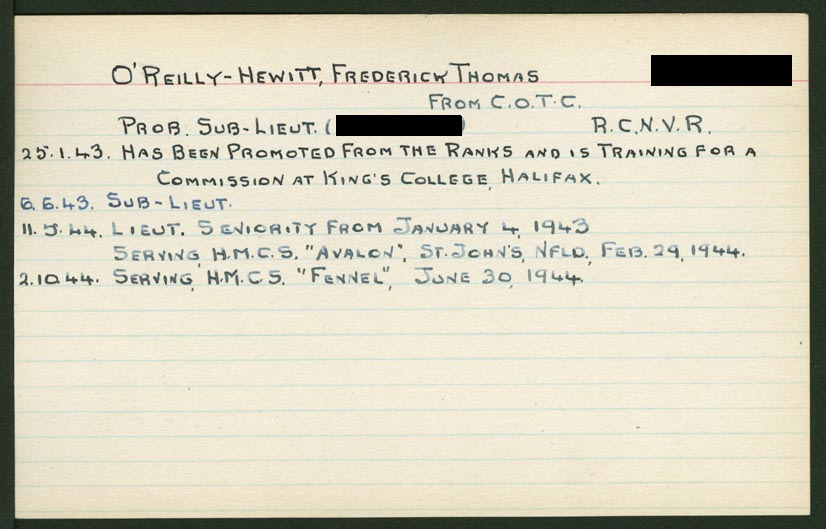 O'REILLY-HEWITT, FREDERICK THOMAS
FROM C.O.T.C.
PROB. SUB-LIEUT. ( ) R.C.N.V.R.
25.1.43. HAS BEEN PROMOTED FROM THE RANKS AND IS TRAINING FOR A
COMMISSION AT KING'S COLLEGE, HALIFAX.
6.6.43. SUB-LIEUT.
11.5.44. LIEUT. SENIORITY FROM JANUARY 4, 1943
SERVING, H.M.C.S. "AVALON", ST. JOHN'S, NFLD., FEB. 29, 1944.
2.10.44. SERVING, H.M.C.S. "FENNEL", JUNE 30, 1944.